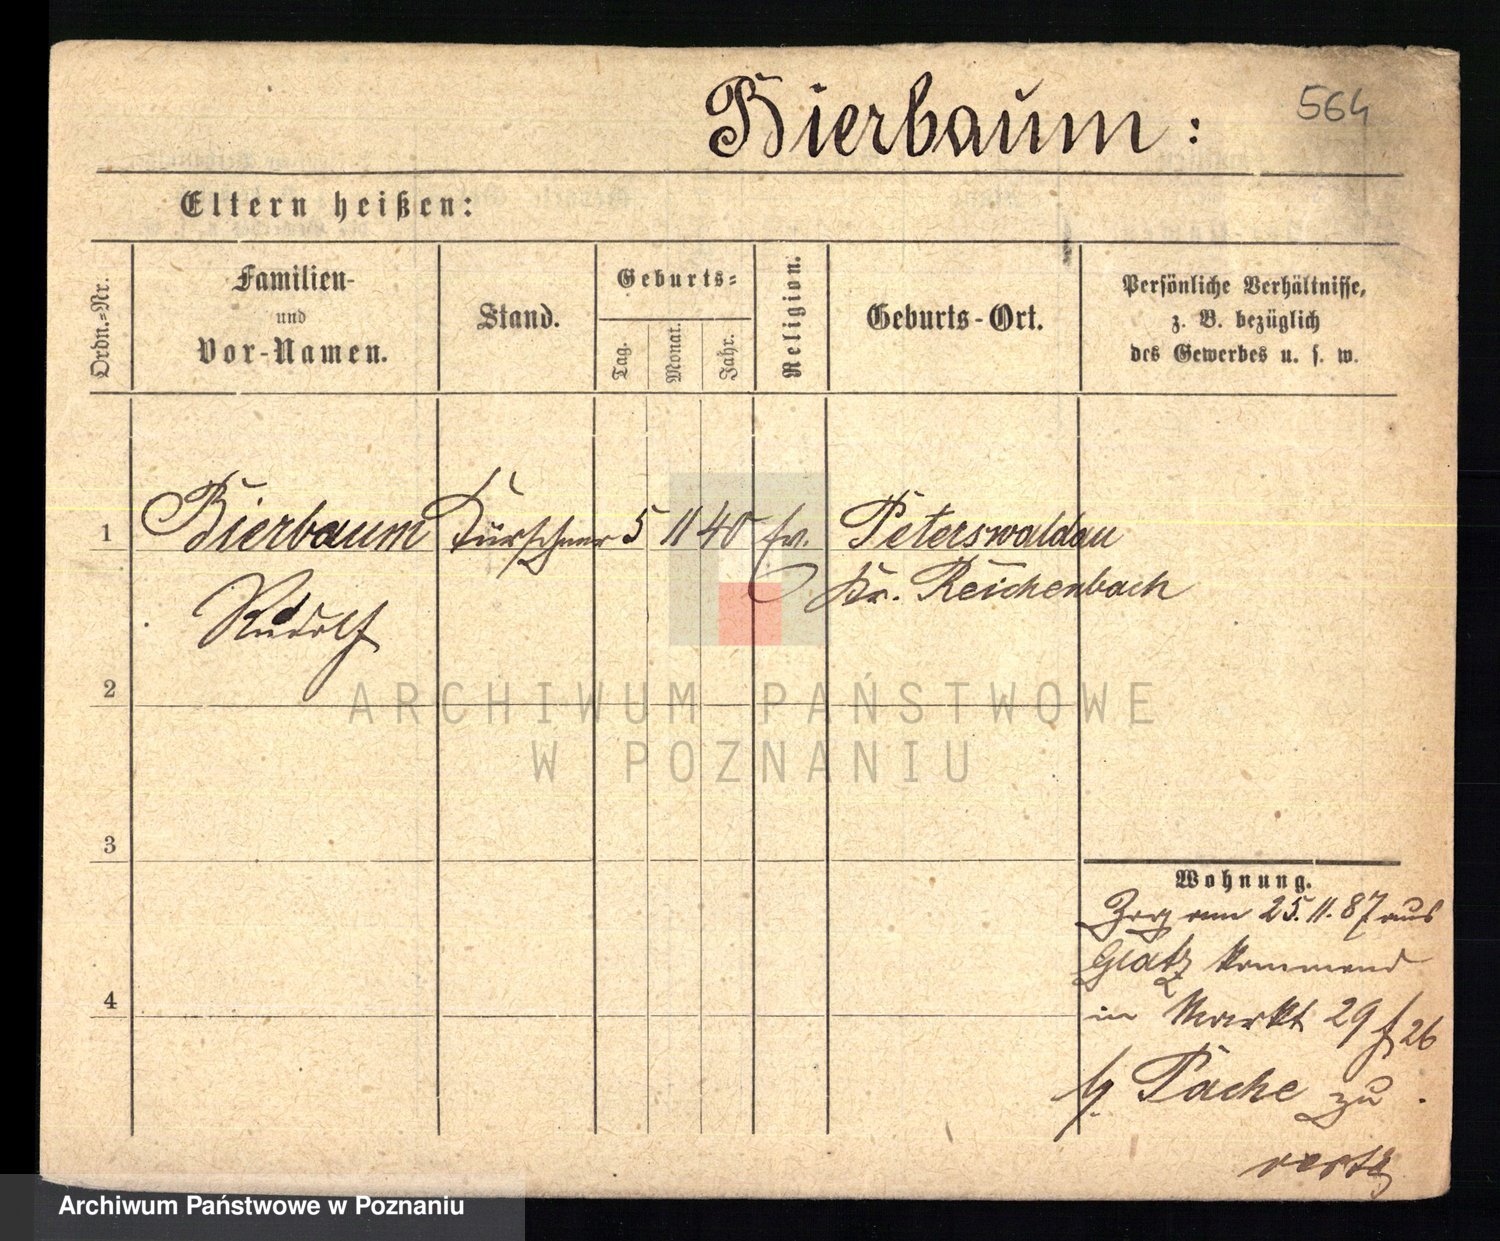 Bierbaum :
564
Eltern heißen:
Ordn.-Nr.
Familien-
und
Vor-Namen.
Stand.
Geburts-
Tag.
Monat.
Jahr.
Religion.
Geburts-Ort.
Persönliche Verhältnisse,
z. B. bezüglich
des Gewerbes u. s. w.
1
Bierbaum
Kürschner
5
11
40
ev.
Peterswaldau
Kr. Reichenbach
Rudolf
2
3
4
Wohnung.
Zrg am 25.11.87 aus
Glatz kommend
in Markt 29 f 26
b/ Päche zu
ARCHIWUM PAŃSTWOWE
W POZNANIU
Archiwum Państwowe w Poznaniu